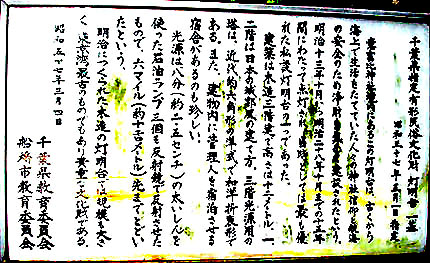 千葉県指定有形民俗文化財 灯明台 一基
昭和三十七年三月一日指定
意富比神社境内にあるこの灯明台は、古くから
海上で生活をたてていた人々の神社信仰と航海
の安全のため浄財を集めて建てられたという。
明治十三年十月から明治二十八年十月までの十五年
間にわたって点灯され当時としては最も優
れた私設灯明台の一つであった。
建築は木造三階建て高さは十二メートル、一
二階は日本の城郭風の建て方、三階光源用の
塔は、近代的な六角形の洋式で和洋折衷形で
ある。五人 建物内に管理人を宿泊させる
宿舎があるのも珍しい。
光源は八分(約二・五センチ)の太いしんを
使った石油ランプ三個を反射鏡で反射させた
もので、六マイル(約十一キロメートル)先までとどい
たという。
明治につくられた木造の灯明台では規模も大き
く、東京湾最古のものでもあり貴重な文化財である。
昭和五十七年三月四日
千葉県教育委員会
船橋市教育委員会